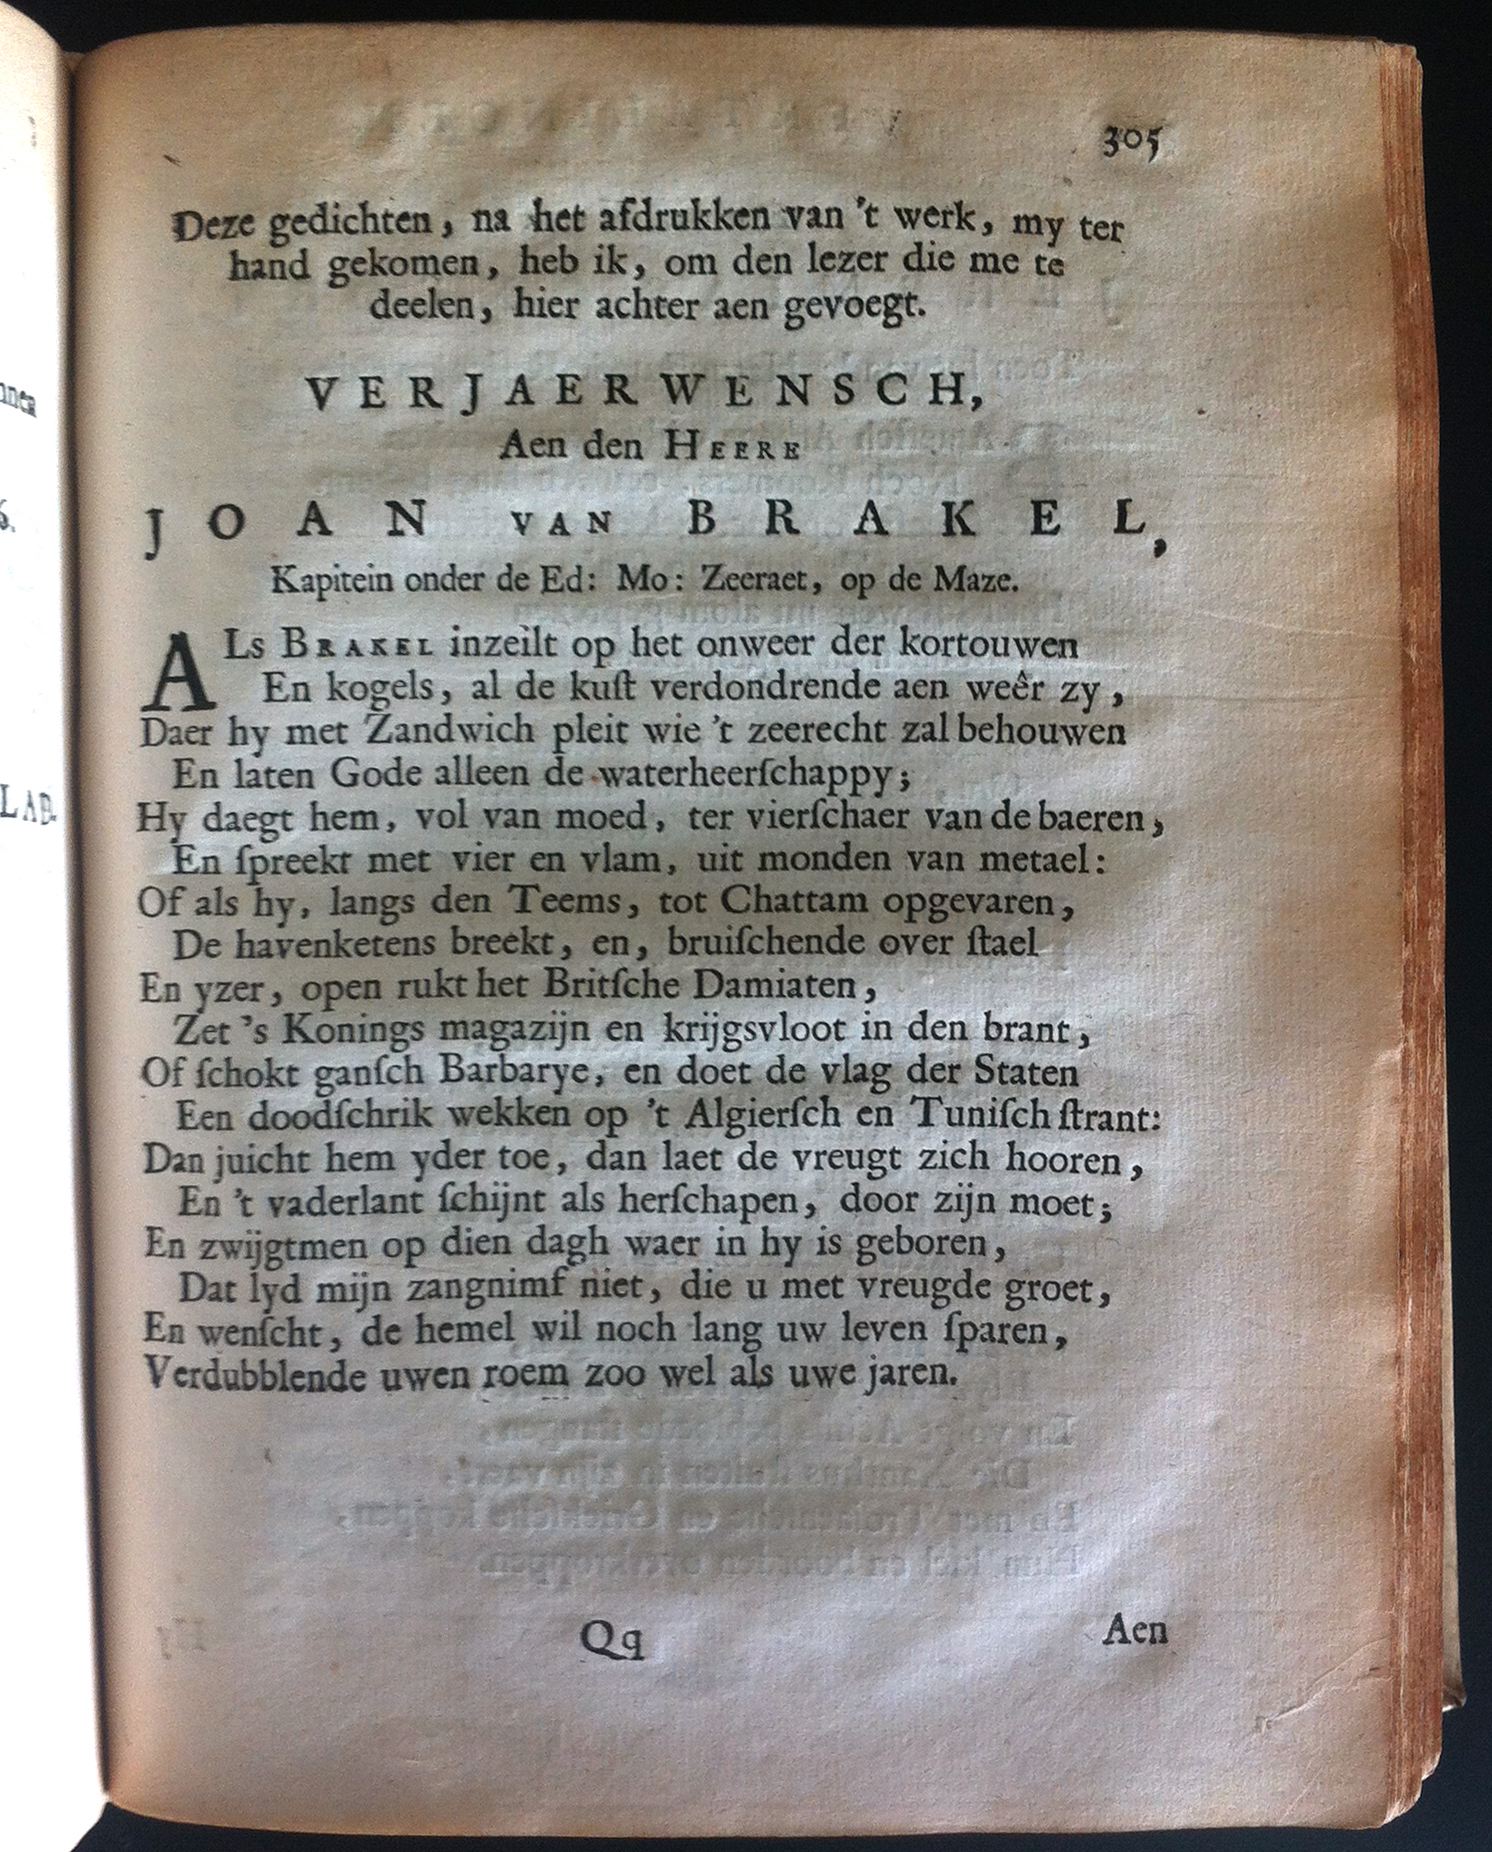 305
Deze gedichten, na het afdrukken van 't werk, my ter
hand gekomen, heb ik, om den lezer die me te
deelen, hier achter aen gevoegt.
VERJAERWENSCH,
Aen den HEERE
JOAN VAN BRAKEL,
Kapitein onder de Ed: Mo: Zeeraet, op de Maze.
ALs BRAKEL inzeilt op het onweer der kortouwen
En kogels, al de kuſt verdondrende aen weêr zy,
Daer hy met Zandwich pleit wie 't zeerecht zal behouwen
En laten Gode alleen de waterheerſchappy;
Hy daegt hem, vol van moed, ter vierſchaer van de baeren,
En ſpreekt met vier en vlam, uit monden van metael:
Of als hy, langs den Teems, tot Chattam opgevaren,
De havenketens breekt, en, bruiſchende over ſtael
En yzer, open rukt het Britſche Damiaten,
Zet 's Konings magazijn en krijgsvloot in den brant,
Of ſchokt ganſch Barbarye, en doet de vlag der Staten
Een doodſchrik wekken op 't Algierſch en Tuniſch ſtrant:
Dan juicht hem yder toe, dan laet de vreugt zich hooren,
En 't vaderlant ſchijnt als herſchapen, door zijn moet;
En zwijgtmen op dien dagh waer in hy is geboren,
Dat lyd mijn zangnimf niet, die u met vreugde groet,
En wenſcht, de hemel wil noch lang uw leven ſparen,
Verdubblende uwen roem zoo wel als uwe jaren.
Qq
Aen